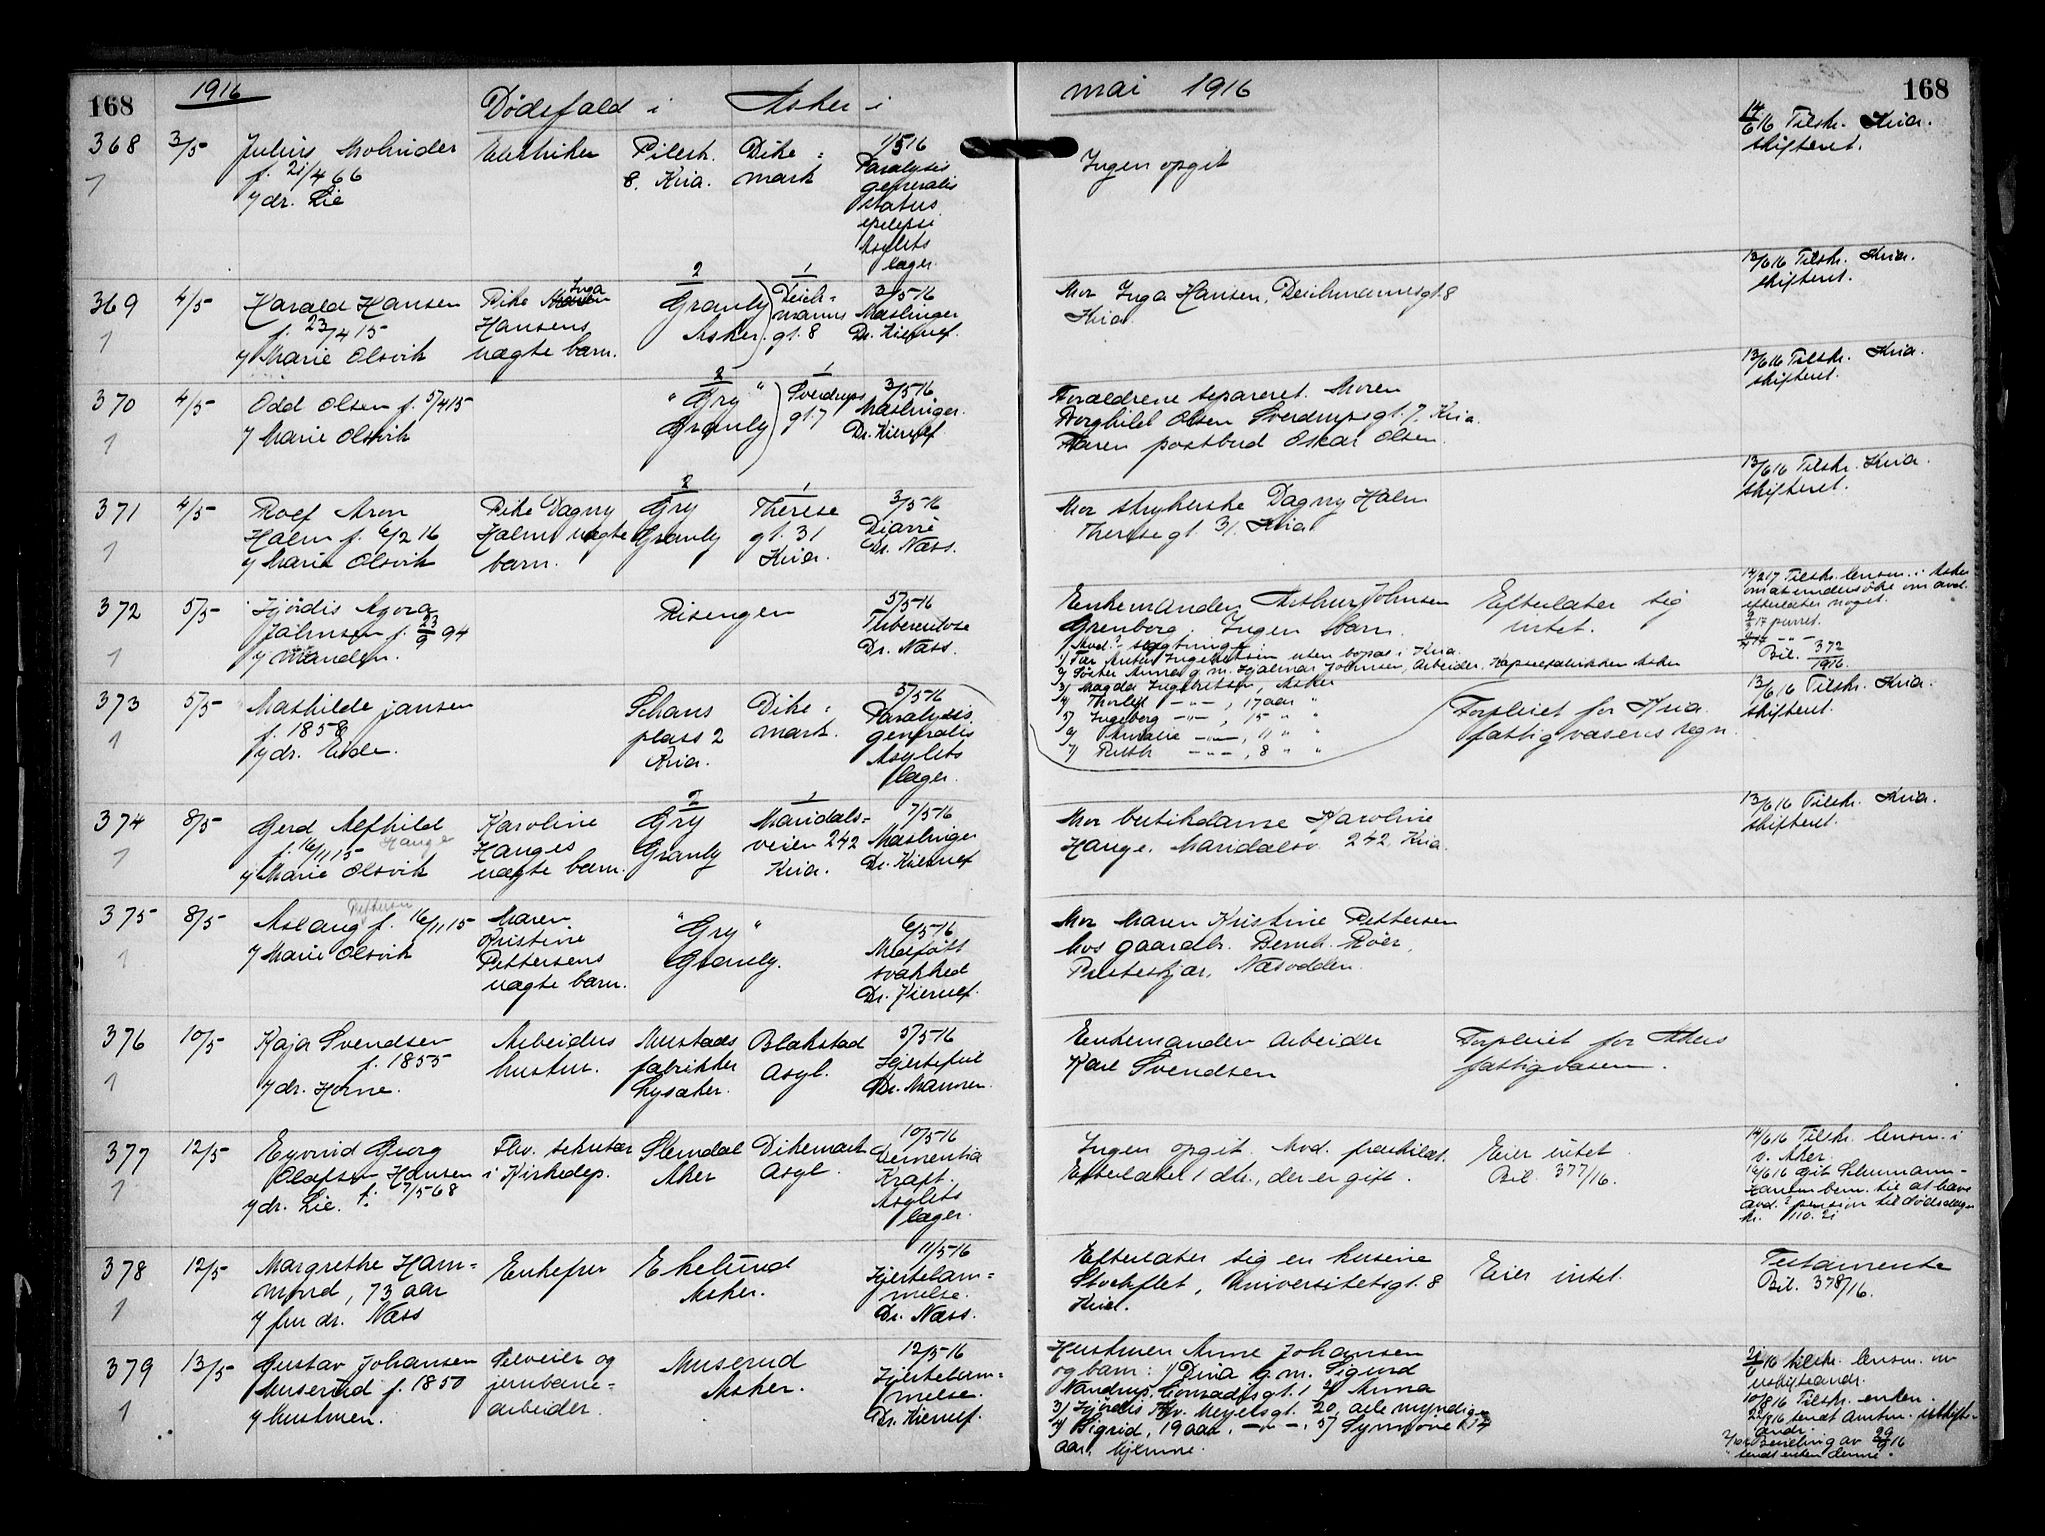 168
1916
Dødsfald i Asker i
mai 1916
168
368
1
3/5
Julius
f. 21/4 66
v/ dr. Lie
Elektriker
Pilestr.
8. Kria.
Dike=
mark
1/5 16
Paralysis
generalis
status
epilepsi
Asylets
læger.
Ingen opgit
14/6 16 Tilskr. Kria.
skifteret.
369
1
4/5
Harald Hansen
f. 23/4 15
v/ Marie Olsvik
Pike Inga
Hansens
uægte barn.
2
Granly
Asker.
1
Deich=
manns
gt. 8
3/5 16
Mæslinger
Dr. Kierulf.
Mor Inga Hansen, Deichmannsgt. 8
Kria.
13/6 16 Tilskr. Kria.
skifteret.
370
1
4/5
Odd Olsen f. 5/4 15
v/ Marie Olsvik
2
"Gry"
Granly
1
Sverdrups
gt. 7
3/5 16
Mæslinger.
Dr. Kierulf
Forældrene separeret. Moren
Borghild Olsen Sverdrupsgt. 7, Kria.
Faren postbud Oskar Olsen.
13/6 16 Tilskr. Kria.
skifteret.
371
1
4/5
Rolf Aron
Halm f. 6/2 16
v/ Marie Olsvik
Pike Dagny
Halms uægte
barn.
2
Gry
Granly
1
Therese
gt. 31
Kria.
3/5 16
Diarré
Dr. Næss.
Mor strykerske Dagny Halm
Theresegt. 31. Kria
13/6 16 Tilskr. Kria.
skifteret.
372
1
5/5
Hjørdis Agora
Johnsen f. 23/9 94
v/ Manden.
Risengen
5/5 16
Tuberculose
Dr. Næss.
Enkemanden Arthur Johnsen
Grenborg. Ingen barn.
Avd.s slegtninge:
1/ Far Anton Ingebretsen uten bopæl i Kria.
2/ Søster Anna g. m. Hjalmar Johnsen, Arbeider, Kapselfabrikken Asker
3/ Magda Ingebretsen, Asker
4/ Thorleif -"- , 17 aar "
5/ Ingeborg -"- , 15 " "
6/ Amalie -"- , 11 " "
7/ Ruth -"- , 8 " "
Efterlater sig
intet.
14/2 17 Tilskr. lensm. i Asker
om at undersøke om avd.
efterlater noget.
17 purret.
Bil. 372/1916.
373
1
5/5
Mathilde Jansen
f. 1858
v/ dr. Evden.
Schous
plass 2
Kria.
Dike=
mark.
5/5 16
Paralysis
generalis
Asylets
læger.
Forpleiet for Kria.
fattigvæsens regn.
13/6 16 Tilskr. Kria.
skifteret.
374
1
8/5
Gerd Alfhild
Hauge
f. 16/11 15
v/ Marie Olsvik
Karoline
Hauges
uægte barn.
2
Gry
Granly
1
Maridals=
veien 242
Kria.
7/5 16
Mæslinger
Dr. Kierulf
Mor butikdame Karoline
Hauge. Maridalsv. 242, Kria.
13/6 16 Tilskr. Kria.
skifteret.
375
1
8/5
Pettersen
Aslaug f. 16/11 15
v/ Marie Olsvik
Maren
Kristine
Pettersens
uægte barn.
"Gry"
Granly.
6/5 16
Medfött
svakhed
Dr. Kierulf.
Mor Maren Kristine Pettersen
hos gaardbr. Bernh. Röer,
Nesodden.
376
1
10/5
Kaja Svendsen
f. 1855
v/ dr. Horne.
Arbeiders
hustru.
Mustads
fabrikker
Lysaker.
Blakstad
Asyl.
5/5 16
Hjertefeil
Dr.
Enkemanden Arbeider
Karl Svendsen
Forpleiet for Akers
fattigvæsen.
377
1
12/5
Eyvind Georg
Olafsen Hansen
v/ dr. Lie. f. 7/5 68
Fhv. sekretær
i Kirkedep.
Stendal
Aker
Dikemark
Asyl.
10/5 16
Dementia
Kraft.
Asylets
læger.
Ingen opgit. Avd. fraskilt.
Efterlater 1 dtr., der er gift.
Eier intet
Bil. 377/16.
14/6 16 Tilskr. lensm. i
v. Aker.
16/6 16 git Schumann-
Hansen bem. til at hæve
avd.s pension til dødsdagen
kr. 110.21
378
1
12/5
Margrethe Ham=
mond, 73 aar
v/ fru dr. Næss
Enkefru
Ekelund
Asker.
11/5 16
Hjertelam=
melse.
Dr. Næss.
Efterlater sig en kusine
Stockflet, Universitetsgt. 8
Kria.
Eier intet.
Testamente
Bil. 378/16.
379
1
13/5
Gustav Johansen
Muserud f. 1850
v/ hustruen.
Selveier og
jernbane=
arbeider.
Muserud
Asker.
12/5 16
Hjertelam=
melse.
Dr. Kierulf.
Hustruen Anne Johansen
og barn: 1/ Dina g. m. Sigurd
Nandrup, Conradisgt. 1 2/ Anna
3/ Hjørdis Meyersgt. 20, alle myndige
4/ Sigrid, 19 aar, -"-. 5/ Synnøve
aar, hjemme.
16 tilskr. lensm. om
uskifteandr.
10/8 16 Tilskr. enken.
22/8 16 sendt Amtm. uskift=
andr.
Bevilling av 29/9 16
sendt enken denne.